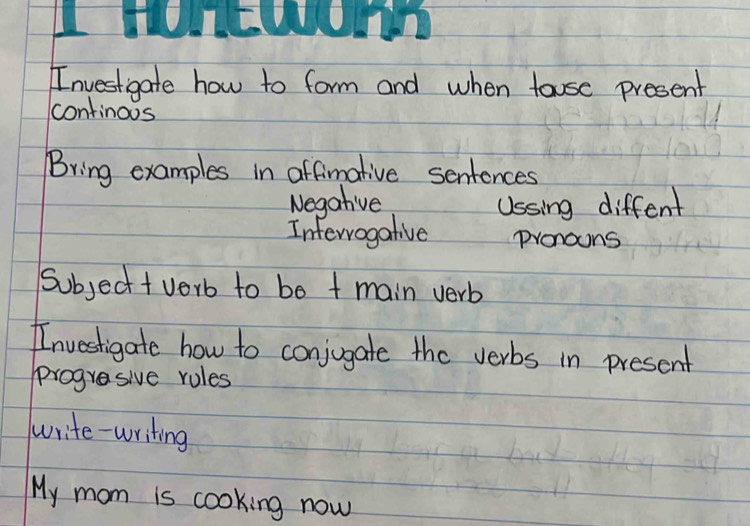 I HOMEWORK
Investigate how to form and when touse present
continous
Bring examples in affimative sentences
Negative Ussing diffent
Interrogative pronouns
Subject + verb to be + main verb
Investigate how to conjugate the verbs in present
progresive rules
write-writing
My mom is cooking now